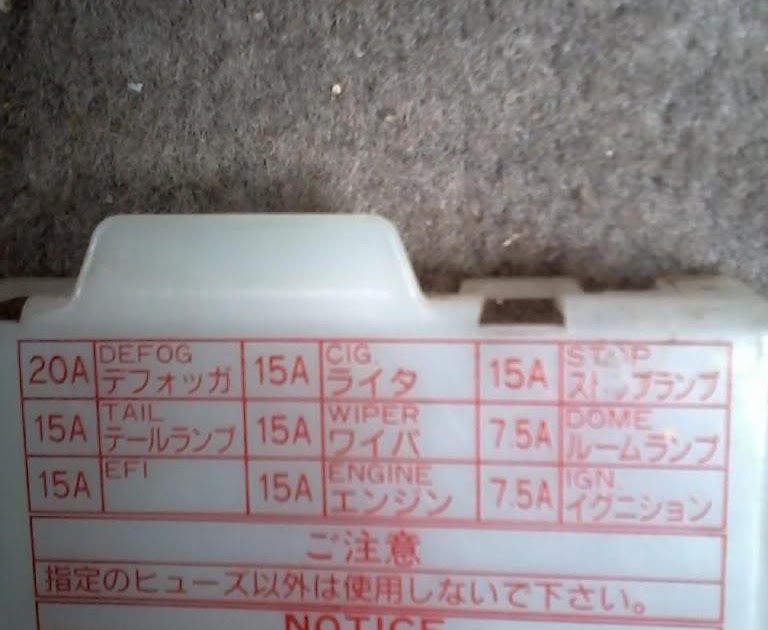 20A DEFOG デフォッガ 15A CIG. ライタ 15A ランプ
15A TAIL テールランプ 15A WIPER ワイパ 7.5A DOME ルームランプ
15A EFI 15A ENGINE エンジン 7.5A IGN. イグニション
ご注意
指定のヒューズ以外は使用しないで下さい。
NOTICE